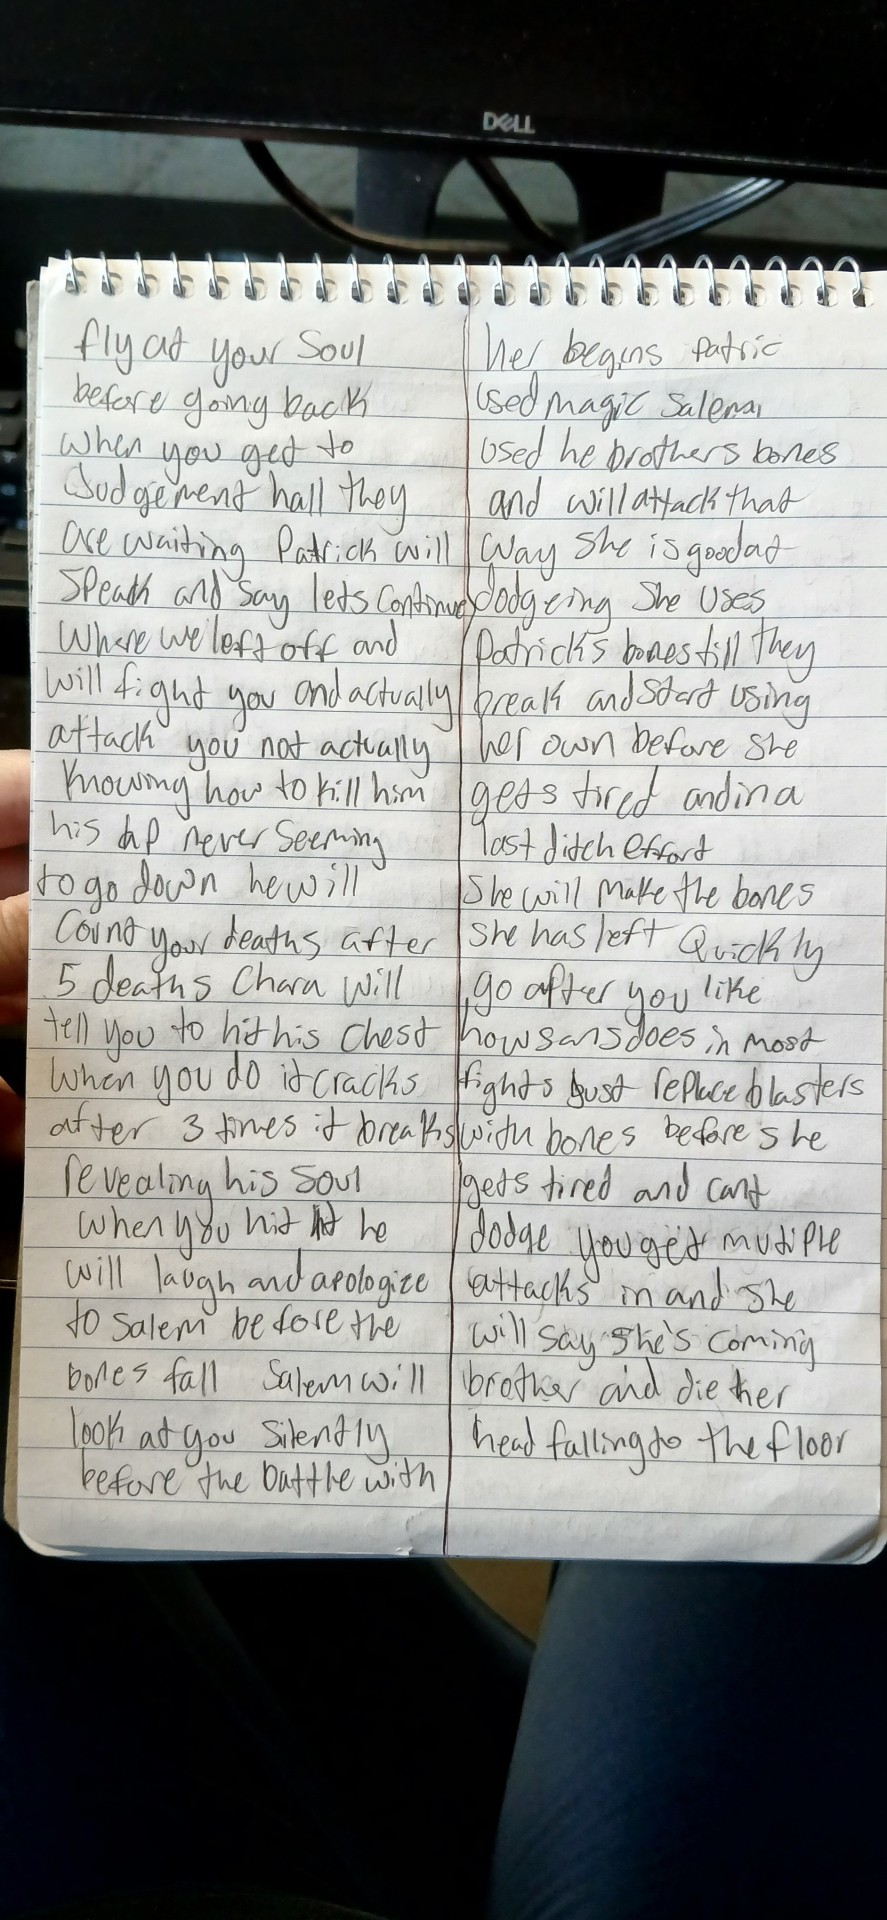 DELL
fly at your Soul
before going back
when you get to
Judgement hall they
are waiting Patrick will
speak and say lets continue
where we left off and
will fight you and actually
attack you not actually
knowing how to kill him
his hp never seeming
to go down he will
Count your deaths after
5 deaths Chara will
tell you to hit his chest
when you do it cracks
after 3 times it breaks
revealing his soul
when you hit it he
will laugh and apologize
to Salem before the
bones fall Salem will
look at you silently
before the battle with
her begins Patric
used magic Salem
used he brothers bones
and will attack that
way she is good at
dodgeing she uses
Patricks bones till they
break and start using
her own before she
gets tired and in a
last ditch effort
she will make the bones
she has left Quickly
go after you like
how sans does in most
fights just replace blasters
with bones before she
gets tired and cant
dodge you get mutiple
attacks in and she
will say she's coming
brother and die her
head falling to the floor